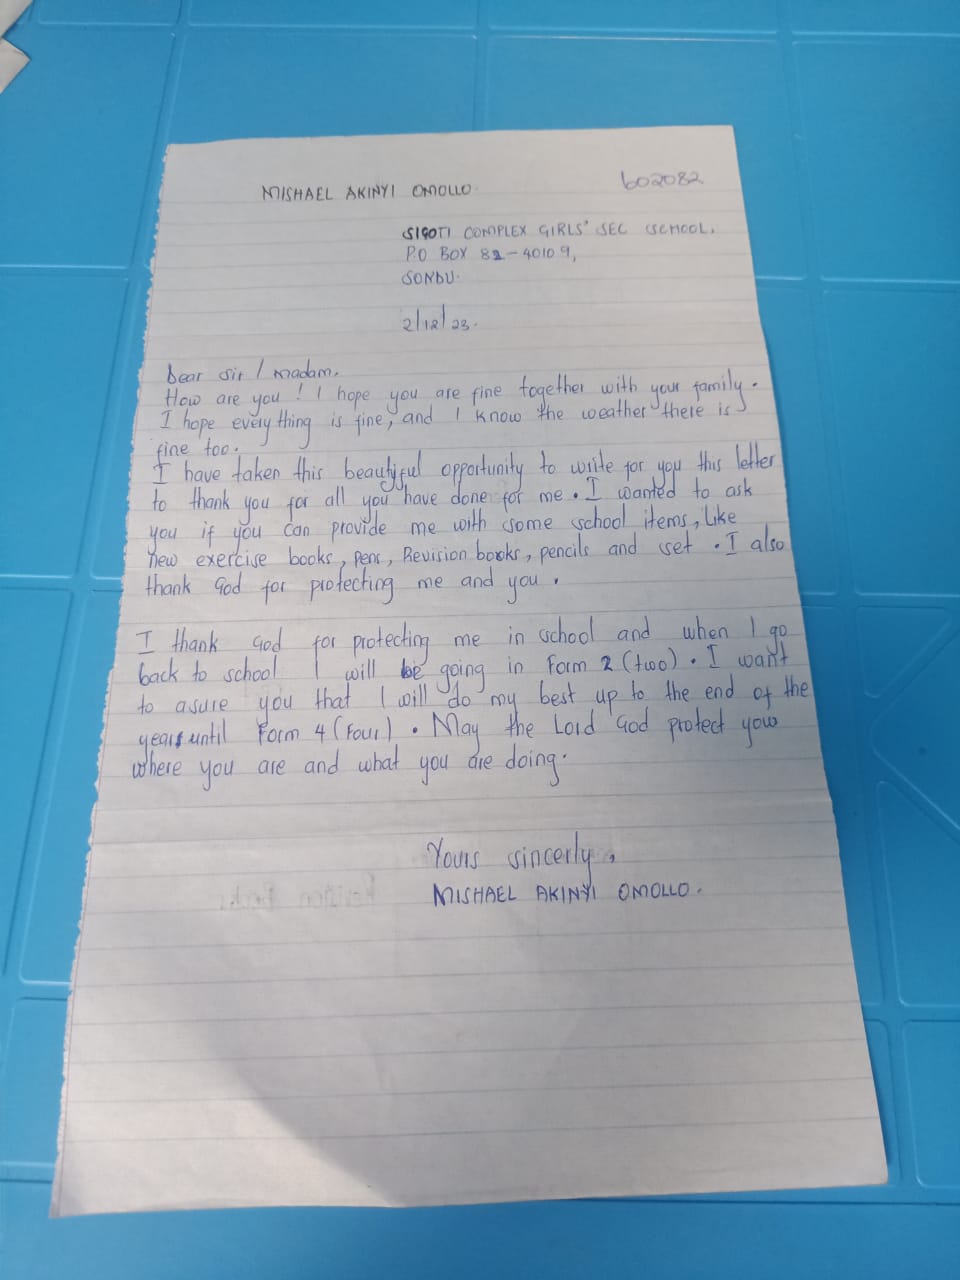 MISHAEL AKINYI OMOLLO.
602082
SIGOTI COMPLEX GIRLS' SEC SCHOOL,
P.O BOX 82-40109,
SONDU.
2/12/23.
Dear sir / madam.
How are you! I hope you are fine together with your family.
I hope everything is fine, and I know the weather there is
fine too.
I have taken this beautiful opportunity to write for you this letter
to thank you for all you have done for me. I wanted to ask
you if you can provide me with some school items, Like
new exercise books, pens, Revision books, pencils and set. I also
thank God for protecting me and you.
I thank God for protecting me in school and when I go
back to school I will be going in Form 2 (two). I want
to asure you that I will do my best up to the end of the
years until Form 4 (Four). May the Lord God protect you
where you are and what you are doing.
Yours sincerly,
MISHAEL AKINYI OMOLLO.